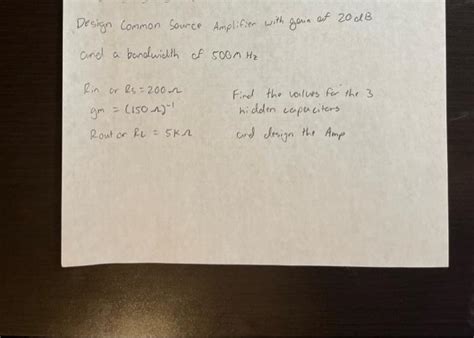 Design Common Source Amplifier with gain of 20dB
and a bandwidth of 500M Hz
Rin or Rs = 200Ω
gm = (150Ω)⁻¹
Rout or RL = 5KΩ
Find the values for the 3
hidden capacitors
and design the Amp